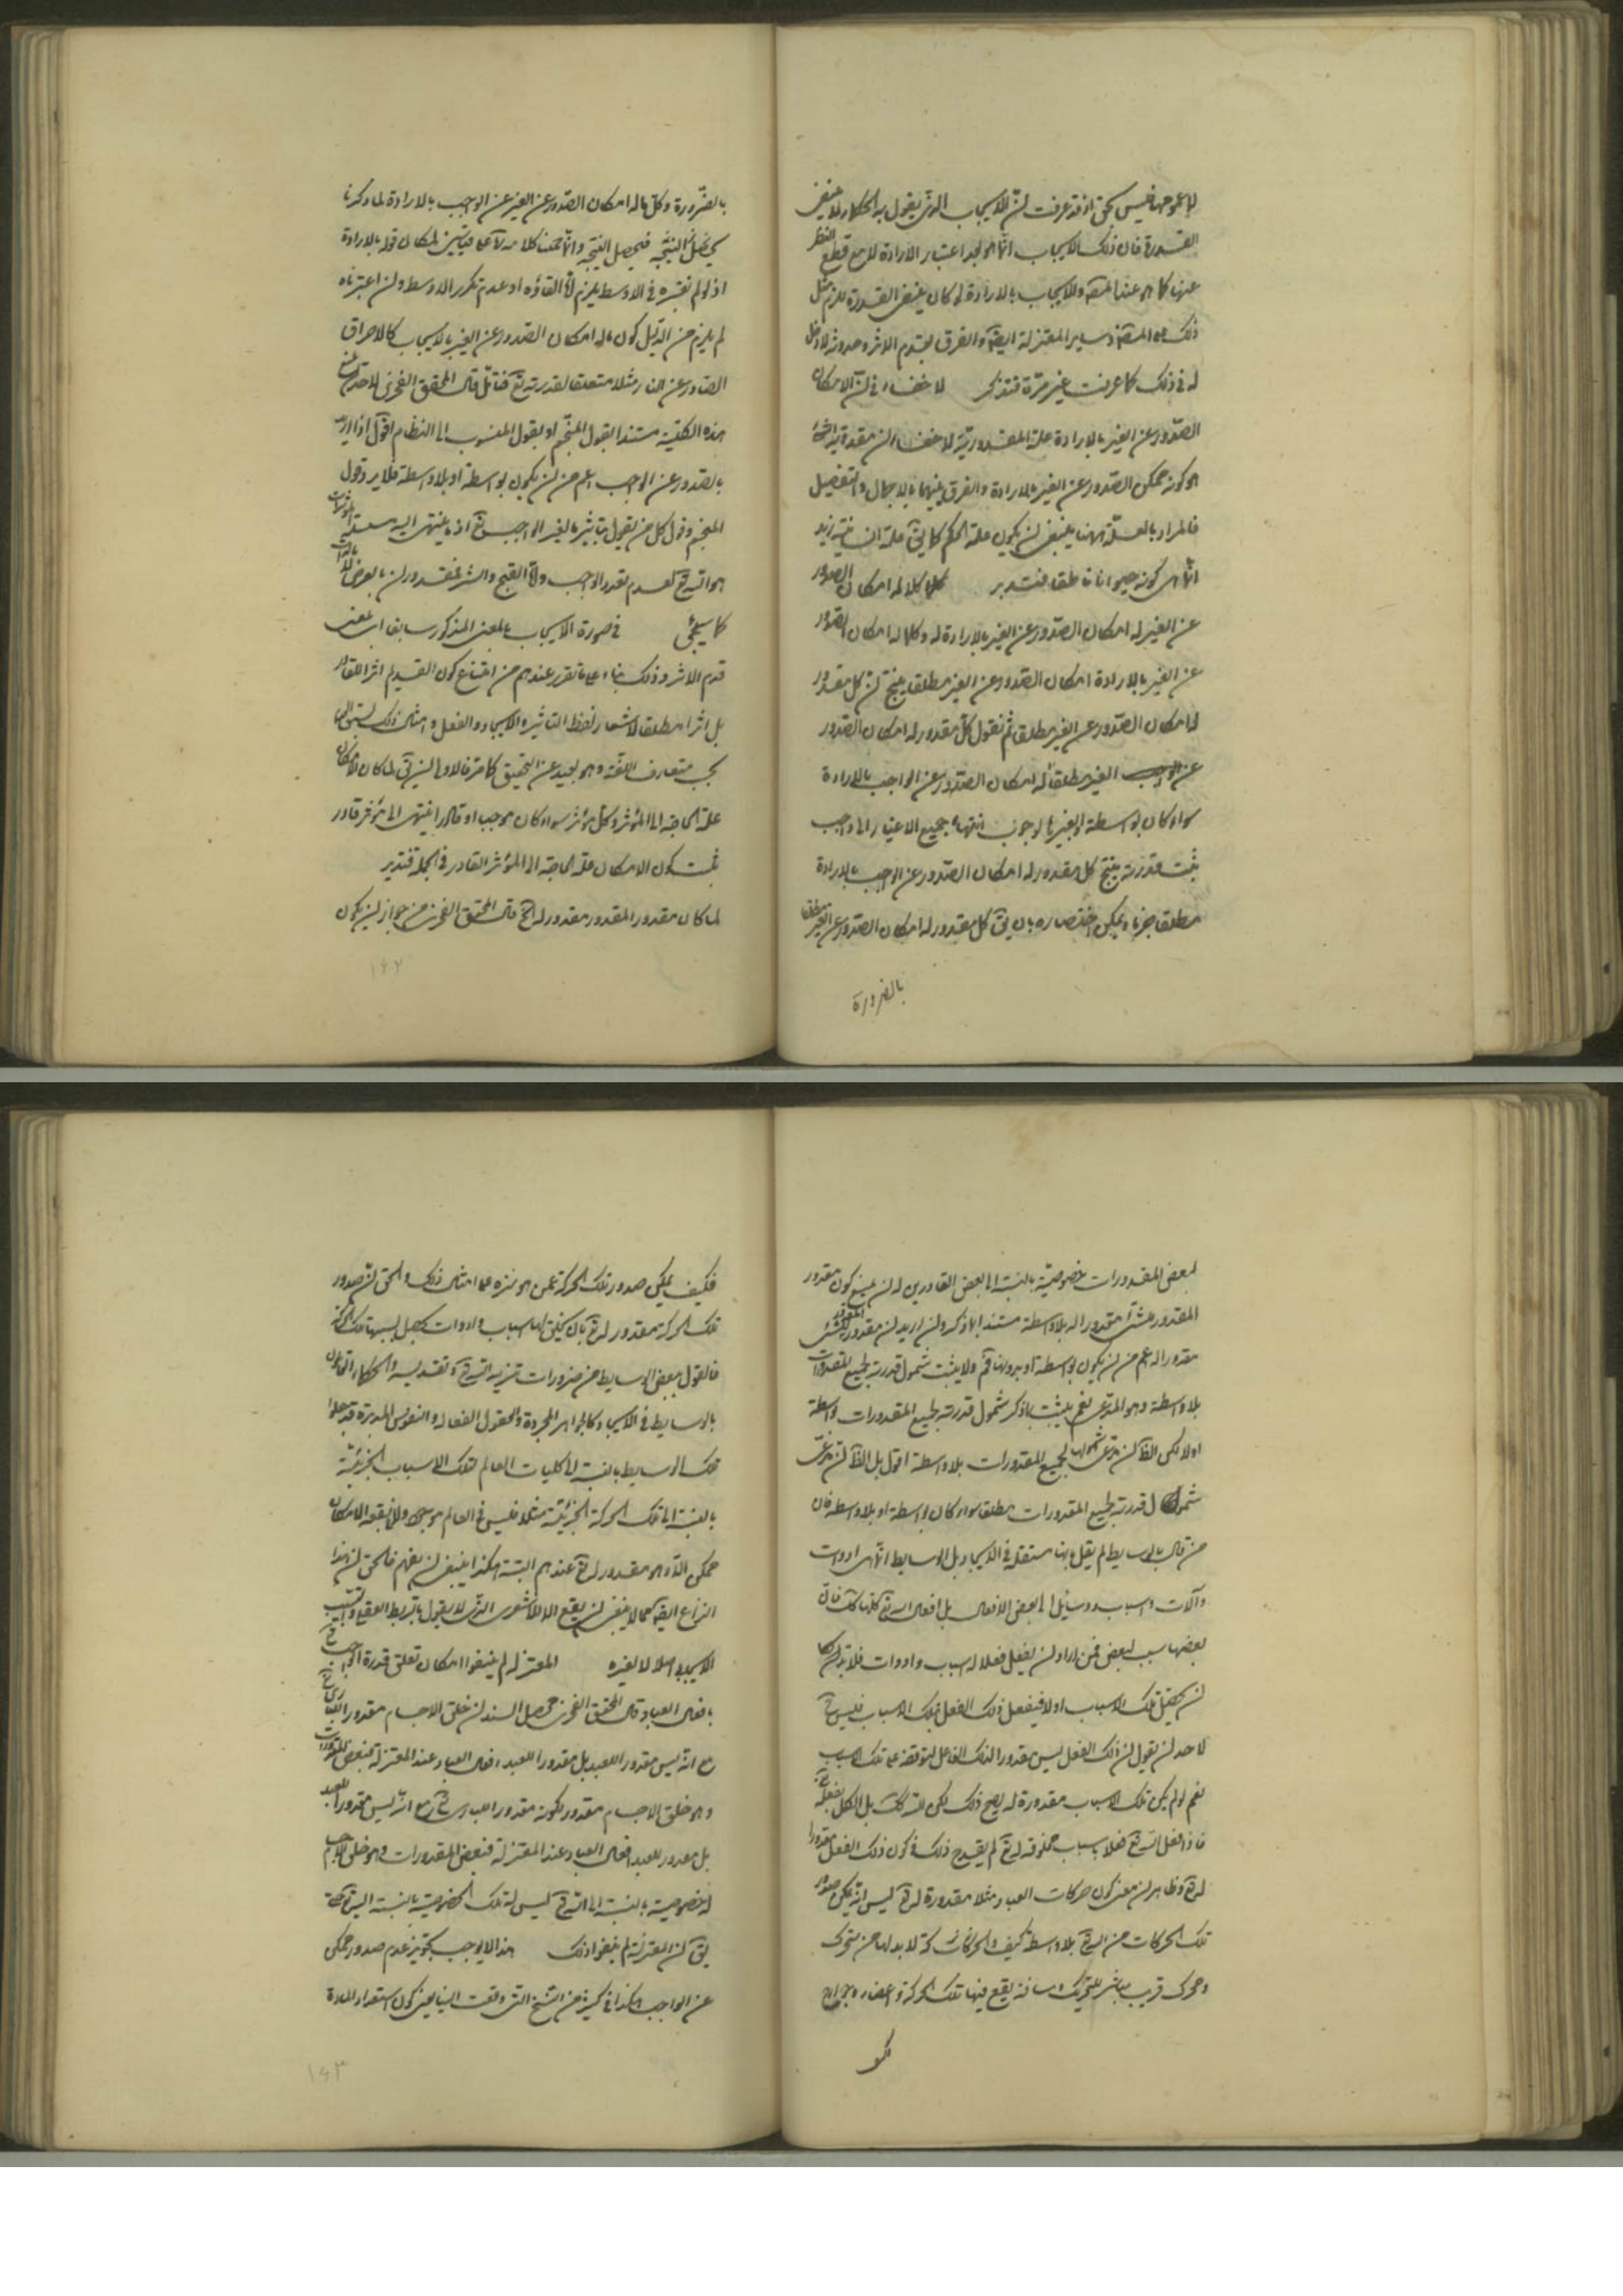 فليس بحق اذ قد عرفت ان الايجاب الذى يقول به الحكماء لا ينفى
القدرة فان ذلك الايجاب انما هو بعد اعتبار الارادة لا مع قطع النظر
عنها كما هو عند المصنف والايجاب بالارادة لو كان ينفى القدرة يلزم مثل
ذلك على المصنف وساير المعتزلة ايضا والفرق بقدم الاثر وحدوثه لا دخل
له فى ذلك كما عرفت غير مرّة فتذكر لا خفاء فى ان الامكان
الصّدور عن الغير بالارادة علة المقدورية لا خفاء ان مقدورية الشئ
هو كونه ممكن الصّدور عن الغير بالارادة والفرق بينهما بالاجمال والتفصيل
فالمراد بالعلّة ههنا ينبغى ان يكون علة الحكم كما يق علة انسانية زيد
انما هى كونه حيوانا ناطقا فتدبر كلما له امكان الصدور
عن الغير له امكان الصّدور عن الغير بالارادة له وكلما له امكان الصّدور
عن الغير بالارادة امكان الصّدور عن الغير مطلقا ينتج ان كل مقدور
له امكان الصّدور عن الغير مطلقا ثم نقول كل مقدور له امكان الصّدور
عن الغير مطلقا له امكان الصّدور عن الواجب بالارادة
سواء كان بواسطة او بغيرها لوجوب انتهاء جميع الاغيار الى واجب
يثبت قدرته ينتج كل مقدور له امكان الصّدور عن الواجب بالارادة
مطلقا جزما ويمكن اختصاره بان يق كل مقدور له امكان الصّدور عن الغير مطلقا
بالضرورة
بالضّرورة وكل ما له امكان الصّدور عن الغير عن الواجب بالارادة لما ذكرنا
فيحصل النتيجة وانما حملنا كلامه على قياسين لمكان قوله بالارادة
اذ لو لم نعتبره فى الاوسط يلزم اما الغاؤه او عدم تكرر الاوسط ولو اعتبرناه
لم يلزم من الدّليل كون ما له امكان الصّدور عن الغير بالايجاب كالاحراق
الصّادر عن النار مثلا متعلقا لقدرته تع فتأمّل قال المحقق الفخرى لاحد منع
هذه الكلية مستندا بقول المنجم او بقول المنسوب الى النظام اقول اذا اريد
بالصّدور عن الواجب اعم من ان يكون بواسطة او بلا واسطة فلا يرد قول
المنجم وقول كل من يقول بتاثير ما لغير الواجب تع اذ ما ينتهى اليه سلسلة المؤثرات
هو الله تع لعدم تعدد الواجب واما القبيح والشر فمقدوران بالعرض لا بالذات
كما سيجئ فى صورة الايجاب بالمعنى المذكور سابقا اى بمعنى
قدم الاثر وذلك بناء على ما تقرر عندهم من امتناع كون القديم اثرا للقادر
بل اثرا مطلقا لاشعار لفظ التاثير والايجاد والفعل وامثال ذلك بسبق العدم
بحسب متعارف اللغة وهو بعيد عن التحقيق كما مر فالاولى ان يق لما كان الامكان
علة الحاجة الى المؤثر وكل مؤثر سواء كان موجبا او قادرا ينتهى الى مؤثر قادر
ثبت كون الامكان علة الحاجة الى المؤثر القادر فى الجملة فتدبر
لما كان مقدور المقدور مقدور له الخ قال المحقق الفخرى من جواز ان يكون
۱۶۲
لبعض المقدورات خصوصيّة بالنسبة الى بعض القادرين له ان يمنع كون مقدور
المقدور لشئ مقدورا له بلا واسطة مستندا بما ذكر وان اريد ان مقدور المقدور لشئ
مقدورا له اعم من ان يكون بواسطة او بدونها فم ولا يثبت شمول قدرته لجميع المقدورات
بلا واسطة وهو المدّعى نعم يثبت بما ذكر شمول قدرته لجميع المقدورات بواسطة
اولا لكن الظ ان مدّعى شمولها لجميع المقدورات بلا واسطة اقول بل الظ ان مدعى
شمول قدرته لجميع المقدورات مطلقا سواء كان بواسطة او بلا واسطة فان
من قال بالوسايط لم يقل بانها مستقلة فى الايجاد بل الوسايط انما هى ادوات
وآلات واسباب ووسائل الى بعض الافعال بل افعال الله تع كلها كك فان
بعضها سبب لبعض فمن اراد ان يفعل فعلا له اسباب وادوات فلا بد له
ان يحصّل تلك الاسباب اولا فيفعل ذلك الفعل بتلك الاسباب فليس ح
لاحد ان يقول ان ذلك الفعل ليس مقدورا لذلك الفاعل لتوقفه على تلك الاسباب
نعم لو لم يكن تلك الاسباب مقدورة له يصح ذلك لكن ليس كك بل الكل بفعله
فاذا فعل الله تع فعلا باسباب مخلوقة له تع لم يقدح ذلك فى كون ذلك الفعل مقدورا
له تع وظاهر ان معنى كون حركات العباد مثلا مقدورة له تع ليس انه يمكن صدور
تلك الحركات من الله تع بلا واسطة كيف والحركة لا بد لها من متحرك
ومحرك قريب مباشر للتحريك ومسافة يقع فيها تلك الحركة واعضاء وجوارح
فكيف
فكيف يمكن صدور تلك الحركة عمن هو منزه عن امثال ذلك والحق ان صدور
تلك الحركة مقدور له تع بان يخلق لها اسباب وادوات يحصل بسببها تلك الحركة
فالقول ببعض الوسايط من ضرورات تنزيه الله تع وتقديسه والحكماء القائلون
بالوسايط فى الايجاد كالجواهر المجردة والعقول الفعالة والنفوس المدبرة قد جعلوا
تلك الوسايط بالنسبة الى كليات العالم كتلك الاسباب الجزئيّة
بالنسبة الى تلك الحركة الجزئيّة مثلا فليس فى العالم موجود ولا فى بقعة الامكان
ممكن الا وهو مقدور له تع عندهم البتة هكذا ينبغى ان يفهم فالحق ان هذا
النزاع ايضا مما لا ينبغى ان يقع الا للاشعرى الذى لا يقول بالربط العقلى والسبب
الايجاد اصلا لا لغيره المعتزلة لم ينفوا امكان تعلق قدرة الواجب تع
بافعال العباد قال المحقق الفخرى محصل السند ان خلق الاجسام مقدور البارى تع
مع انه ليس مقدورا للعبد بل مقدور العبد افعال العباد عند المعتزلة فبعض المقدورات
وهو خلق الاجسام مقدور بكونه مقدور البارى تع مع انه ليس مقدورا للعبد
بل مقدور العبد افعال العباد عند المعتزلة فبعض المقدورات وهو خلق الاجسام
له خصوصية بالنسبة الى الله تع ليس له تلك الخصوصية بالنسبة اليه تع حتى
يق ان المعتزلة لم ينفوا ذلك هذا لا يوجب تجويز عدم صدور ممكن
عن الواجب هكذا فى كثير من النسخ التى وقعت الينا يعنى كون استعداد المادة
۱۶۳